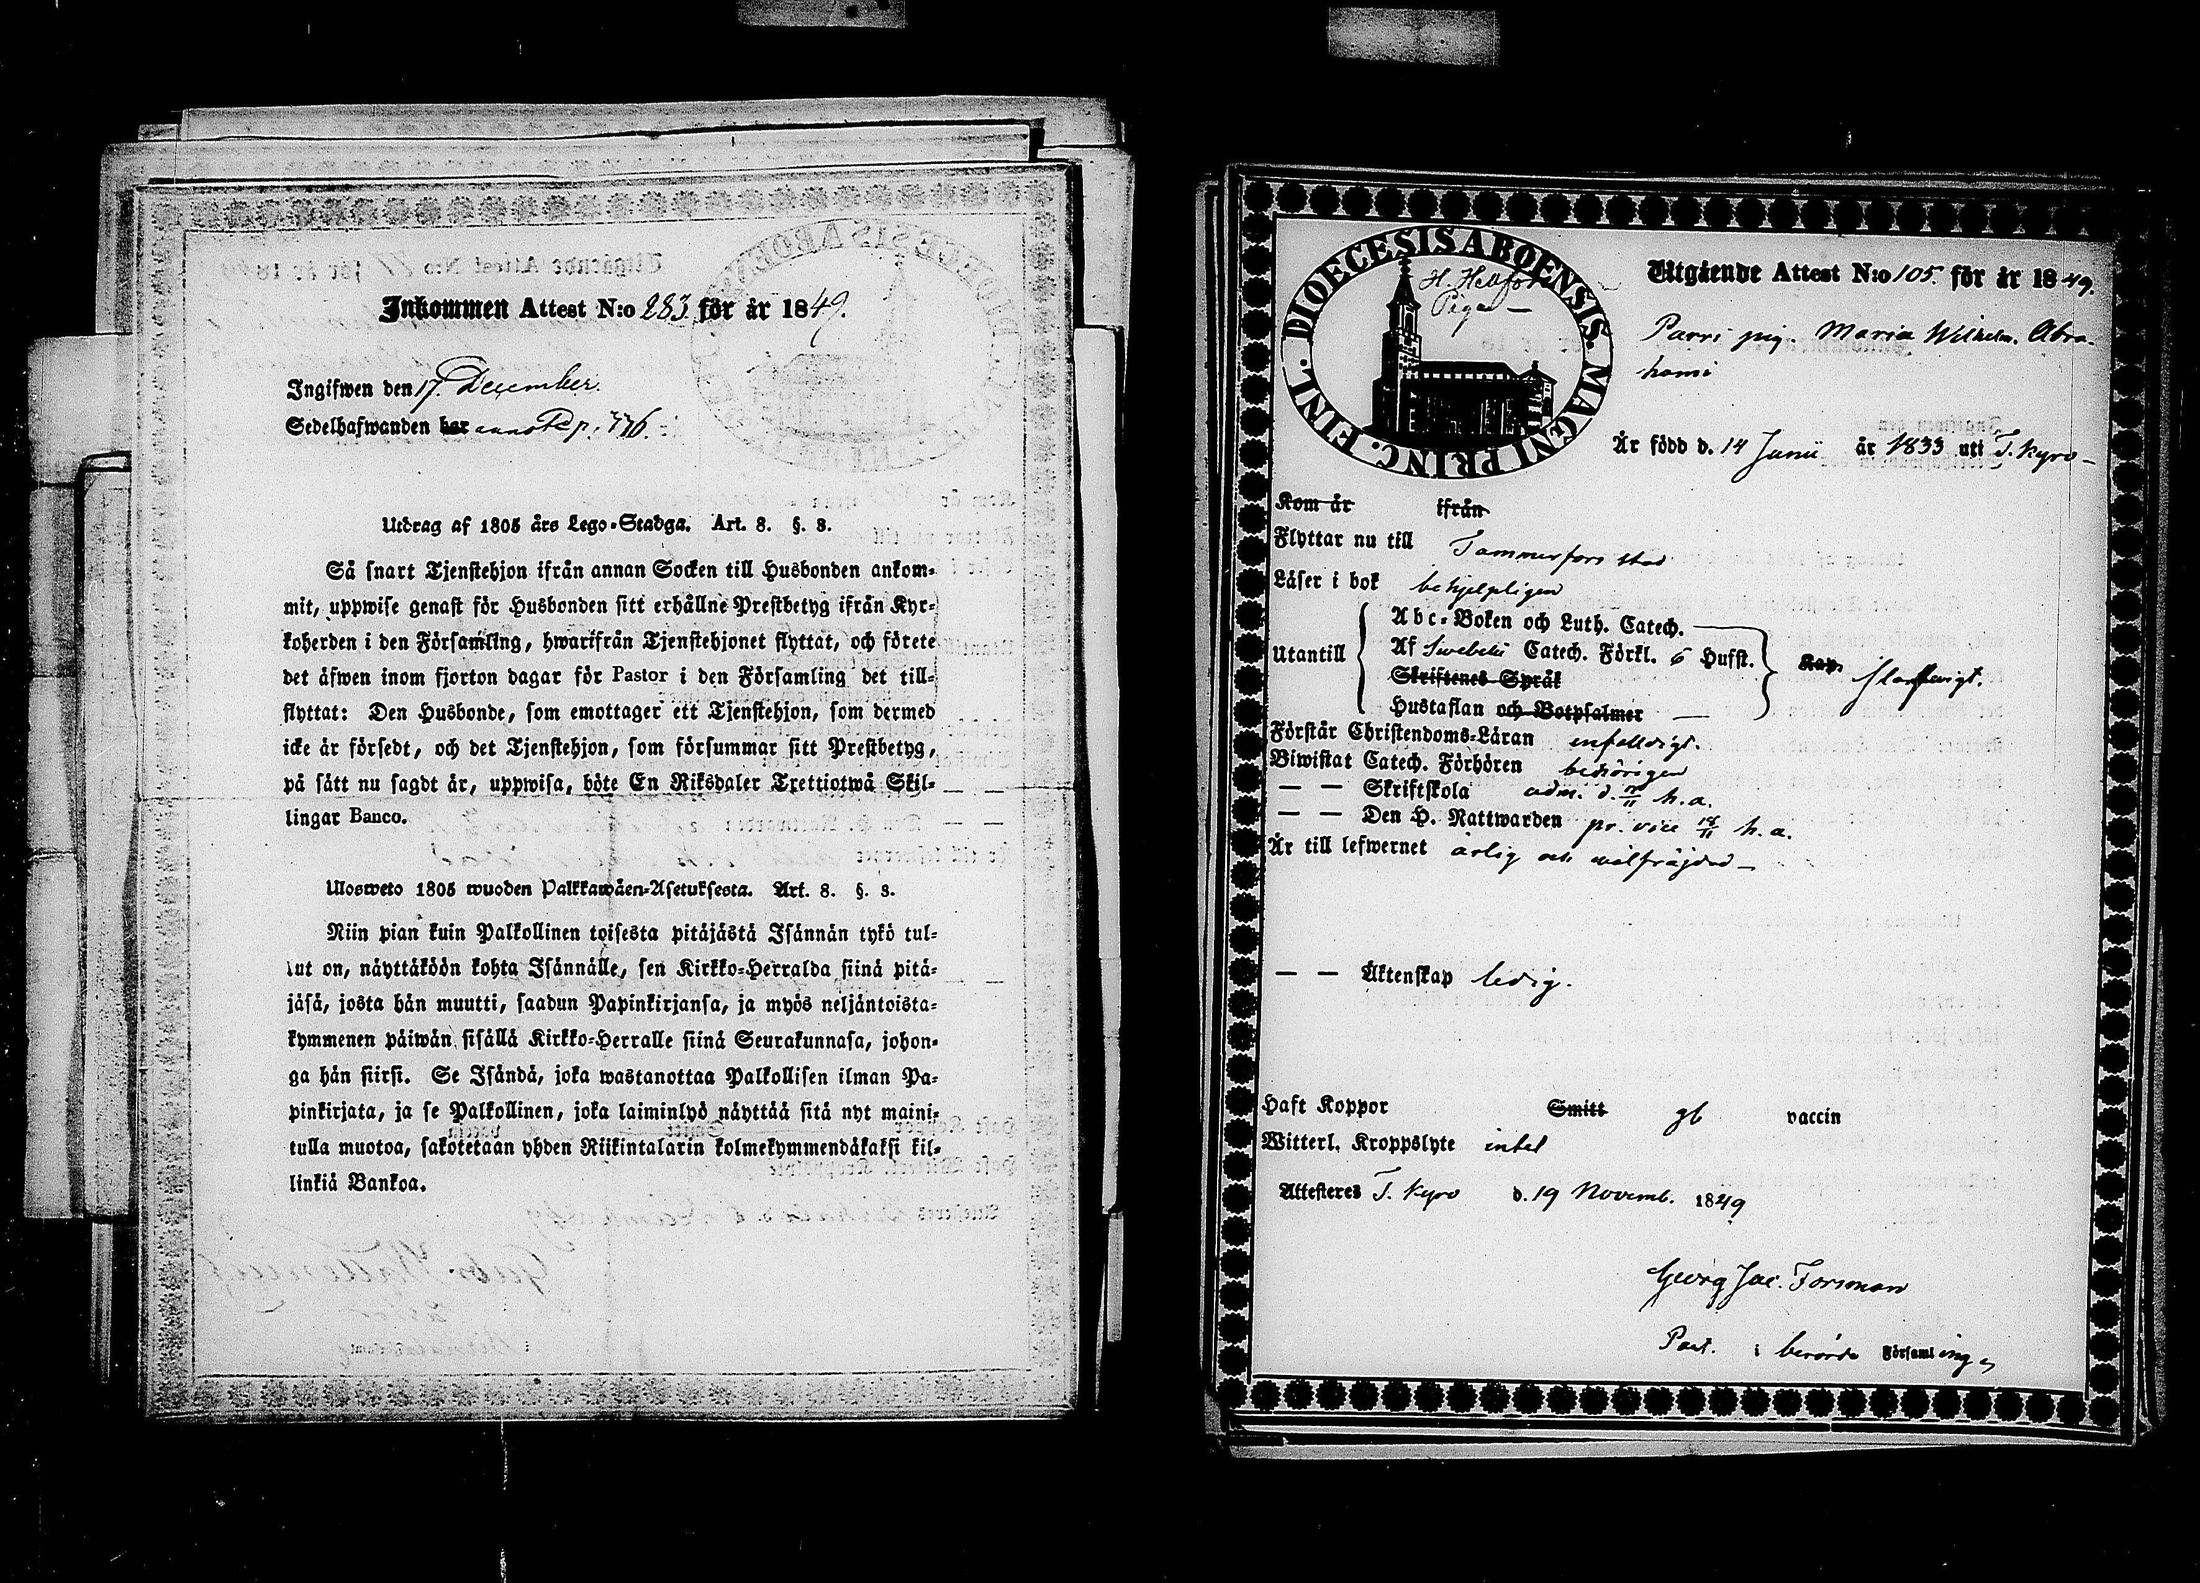 Inkommen Attest N:o 283 för år 1849.
Ingifwen den 17. December.
Sedelhafwanden har annot. p. 776.
Utdrag af 1805 års Lego-Stadga. Art. 8. §. 8.
Så snart Tjenstehjon ifrån annan Socken till Husbonden ankom-
mit, uppwise genast för Husbonden sitt erhållne Prestbetyg ifrån Kyr-
koherden i den Församling, hwarifrån Tjenstehjonet flyttat, och förete
det äfwen inom fjorton dagar för Pastor i den Församling det till-
flyttat: Den Husbonde, som emottager ett Tjenstehjon, som dermed
icke är försedt, och det Tjenstehjon, som försummar sitt Prestbetyg,
på sätt nu sagdt är, uppwisa, böte En Riksdaler Trettiotwå Skil-
lingar Banco.
Ulosweto 1805 wuoden Palkkawäen-Asetuksesta. Art. 8. §. 8.
Niin pian kuin Palkollinen toisesta pitäjästä Isännän tykö tul-
lut on, näyttäköön kohta Isännälle, sen Kirkko-Herralda siinä pitä-
jäsä, josta hän muutti, saadun Papinkirjansa, ja myös neljäntoista-
kymmenen päiwän sisällä Kirkko-Herralle siinä Seurakunnasa, johon-
ga hän siirsi. Se Isändä, joka wastanottaa Palkollisen ilman Pa-
pinkirjata, ja se Palkollinen, joka laiminlyö näyttää sitä nyt maini-
tulla muotoa, sakotetaan yhden Riikintalarin kolmekymmendäkaksi kil-
linkiä Bankoa.
DIOECESIS ABOENSIS. MAGNI PRINC. FINL.
Piga
Utgående Attest N:o 105. för år 1849.
Parri pig. Maria Wilhelm. Abra-
hami
Är född d. 14 Junii år 1833 uti T. Kyro
Kom år ifrån
Flyttar nu till Tammerfors stad
Läser i bok behjelpligen
Utantill
Abc-Boken och Luth. Catech.
Af Swebelii Catech. Förkl. 6 Hufst. Kap.
Skriftenes Språk
Hustaflan och Botpsalmer
Förstår Christendoms-Läran enfaldigt.
Biwistat Catech. Förhören behörigen
— — Skriftskola adm. d. h. a.
— — Den H. Nattwarden pr. vice 18/11 h. a.
Är till lefwernet ärlig och wälfräjdad
— — Äktenskap ledig.
Haft Koppor Smitt gb vaccin
Witterl. Kroppslyte intet
Attesteres T. Kyro d. 19 Novemb. 1849
Georg Jac. Forsman
Past. i berörde Församlingen